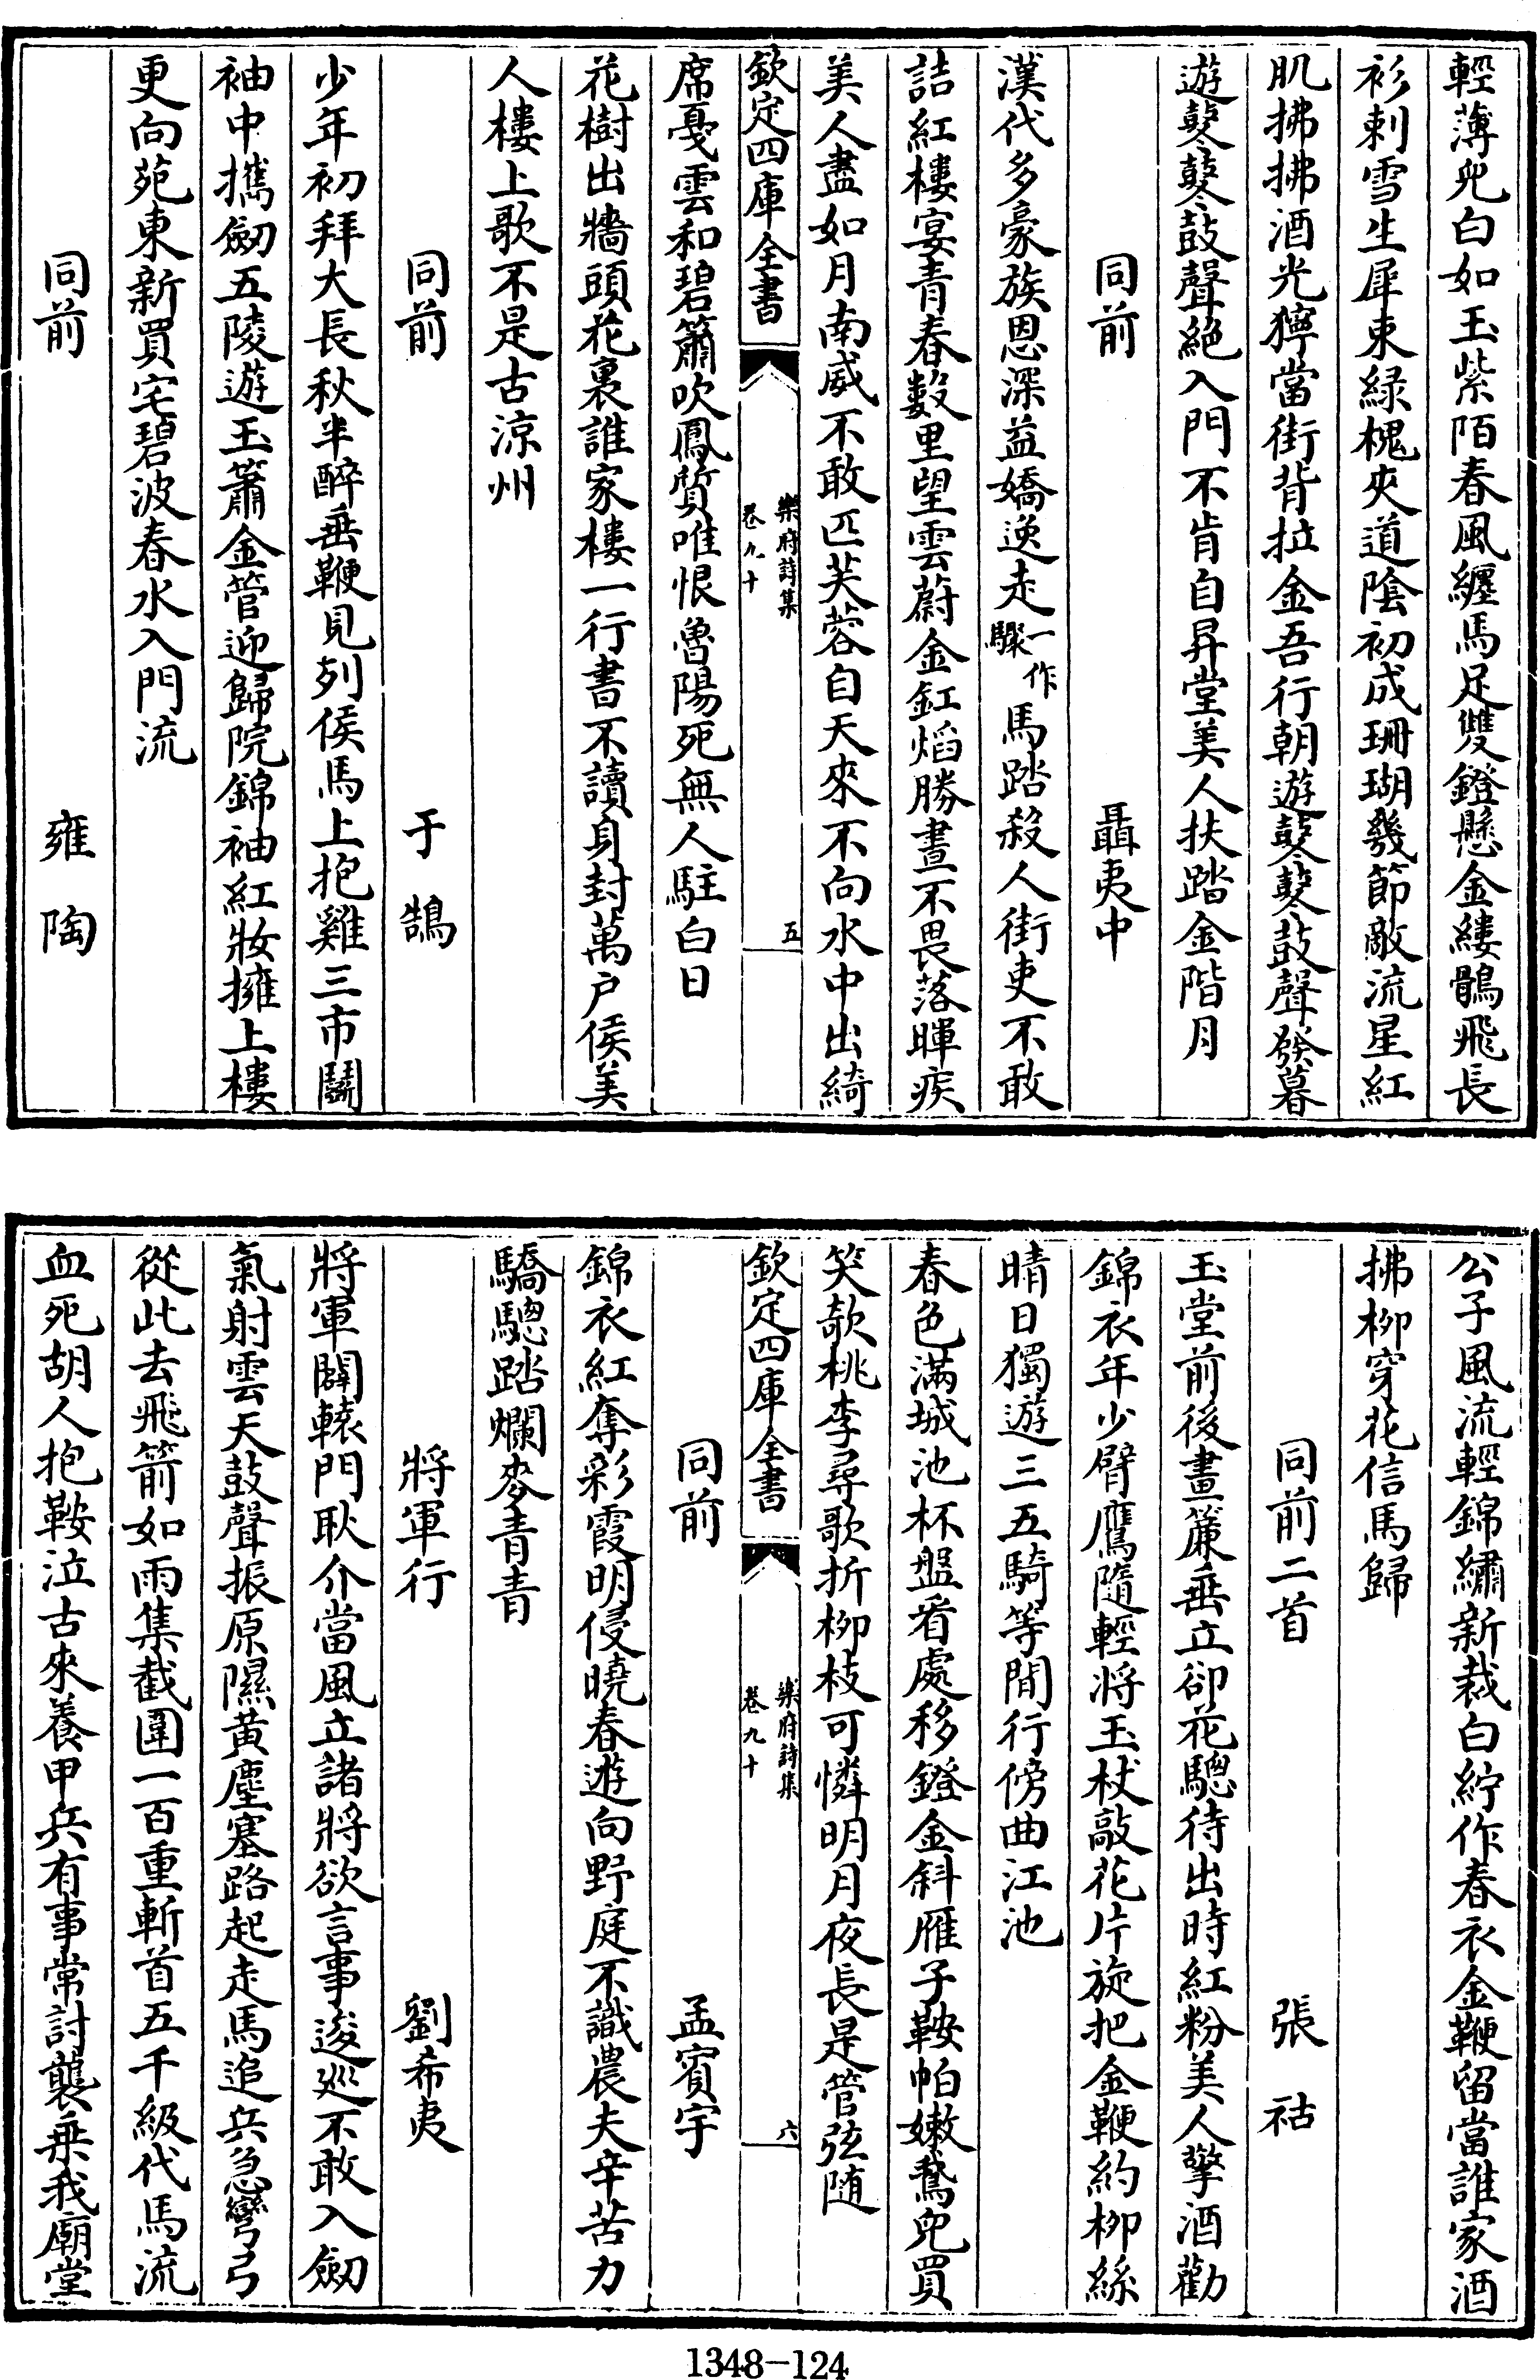 輕薄兒白如玉紫陌春風纏馬足雙鐙懸金縷鶻飛長
衫刺雪生犀束緑槐夾道隂初成珊瑚幾節敵流星紅
肌拂拂酒光獰當街背拉金吾行朝遊鼕鼕鼓聲發暮
遊鼕鼕鼓聲絶入門不肯自昇堂美人扶踏金階月
同前 聶夷中
漢代多豪族恩深益嬌逸走一作驟馬踏殺人街吏不敢
詰紅樓宴青春數里望雲蔚金釭熖勝晝不畏落暉疾
美人盡如月南威不敢匹芙蓉自天來不向水中出綺
欽定四庫全書 樂府詩集 卷九十 五
席戞雲和碧簫吹鳳質唯恨魯陽死無人駐白日
花樹出牆頭花裏誰家樓一行書不讀身封萬户侯美
人樓上歌不是古涼州
同前 于鵠
少年初拜大長秋半醉垂鞭見列侯馬上抱雞三市鬭
袖中擕劒五陵遊玉簫金管迎歸院錦袖紅妝擁上樓
更向苑東新買宅碧波春水入門流
同前 雍陶
公子風流輕錦繡新裁白紵作春衣金鞭留當誰家酒
拂柳穿花信馬歸
同前二首 張祜
玉堂前後畫簾垂立卻花驄待出時紅粉美人擎酒勸
錦衣年少臂鷹隨輕將玉杖敲花片旋把金鞭約柳絲
晴日獨遊三五騎等閒行傍曲江池
春色滿城池杯盤看處移鐙金斜雁子鞍帕嫩鵞兒買
笑欹桃李尋歌折柳枝可憐明月夜長是管弦隨
欽定四庫全書 樂府詩集 卷九十 六
同前 孟賓宇
錦衣紅奪彩霞明侵曉春遊向野庭不識農夫辛苦力
驕驄踏爛麥青青
將軍行 劉希夷
將軍闢轅門耿介當風立諸將欲言事逡巡不敢入劒
氣射雲天鼓聲振原隰黄塵塞路起走馬追兵急彎弓
從此去飛箭如雨集截圍一百重斬首五千級代馬流
血死胡人抱鞍泣古來養甲兵有事常討襲乗我廟堂
1348-124